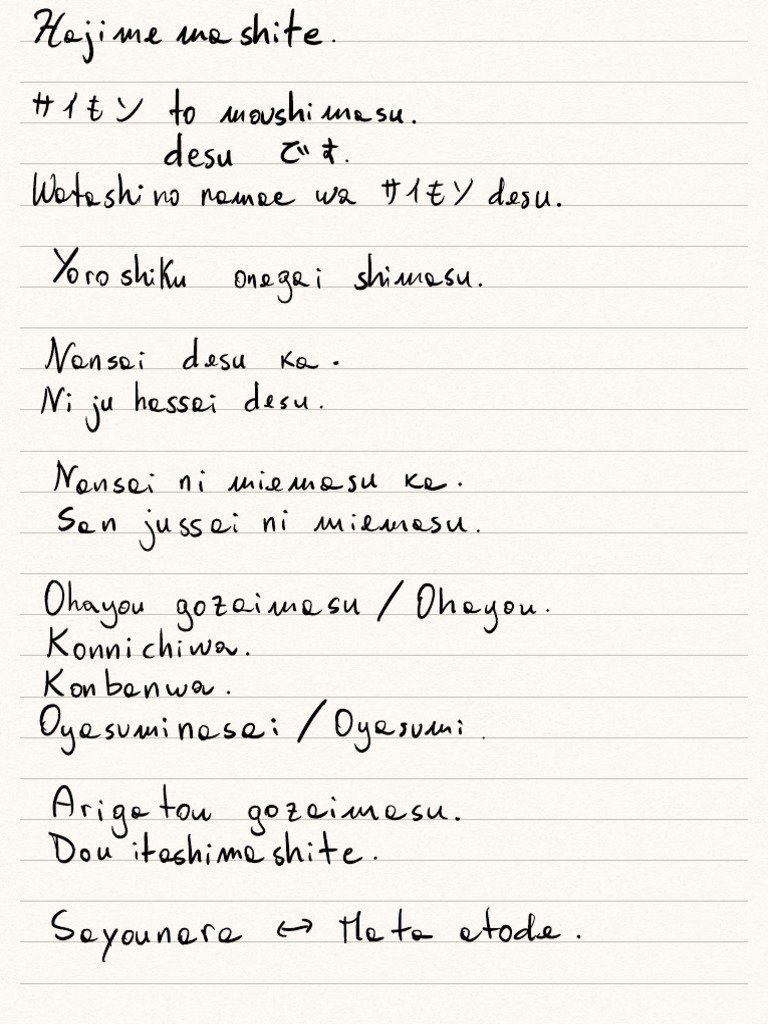 Hajimemashite.
サイモン to moushimasu.
desu です.
Watashi no namae wa サイモン desu.
Yoroshiku onegai shimasu.
Nansai desu ka.
Ni ju hassai desu.
Nansai ni miemasu ka.
San jussai ni miemasu.
Ohayou gozaimasu / Ohayou.
Konnichiwa.
Konbanwa.
Oyasuminasai / Oyasumi.
Arigatou gozaimasu.
Dou itashimashite.
Sayounara ↔ Mata atode.